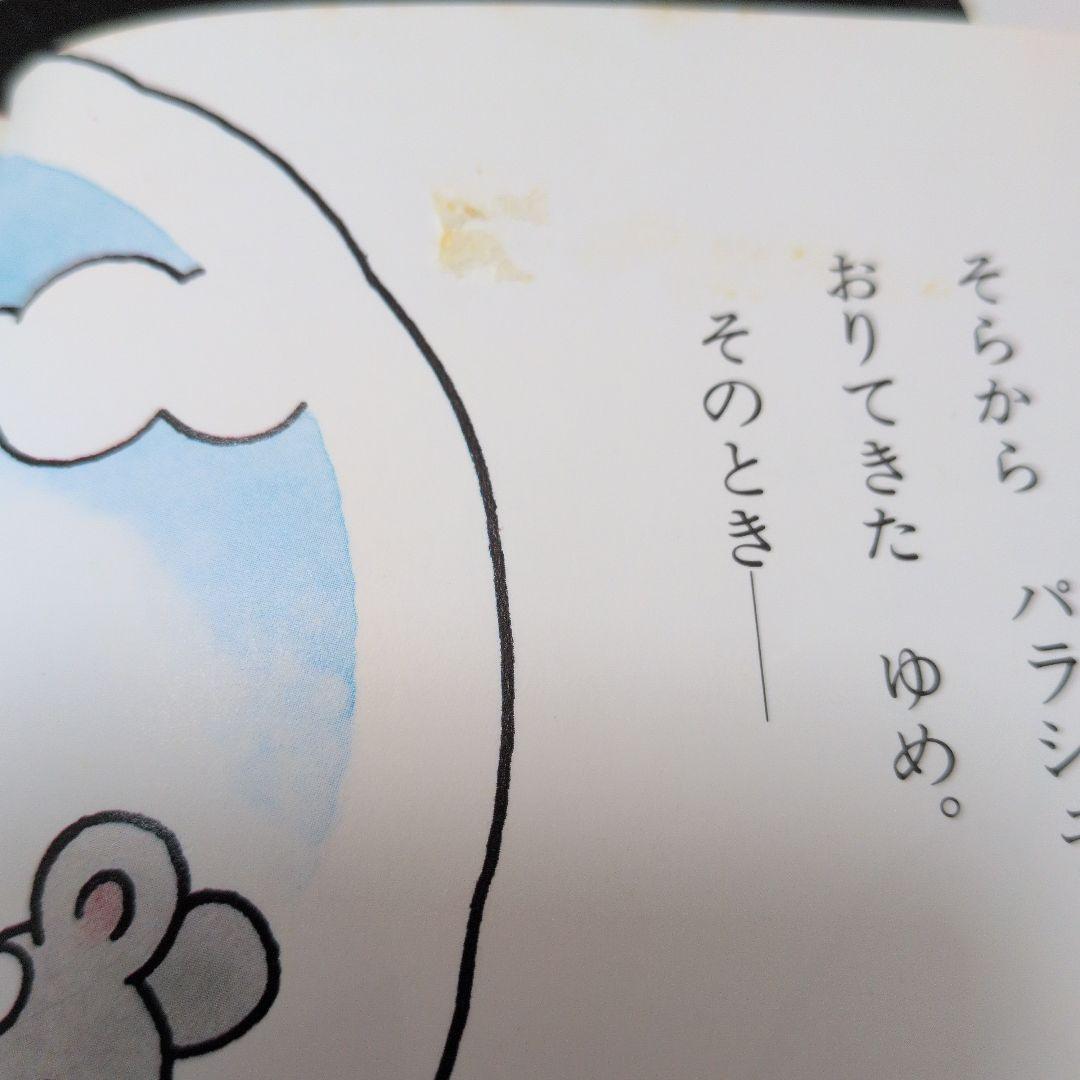 そらから パラシュ
おりてきた ゆめ。
そのとき――